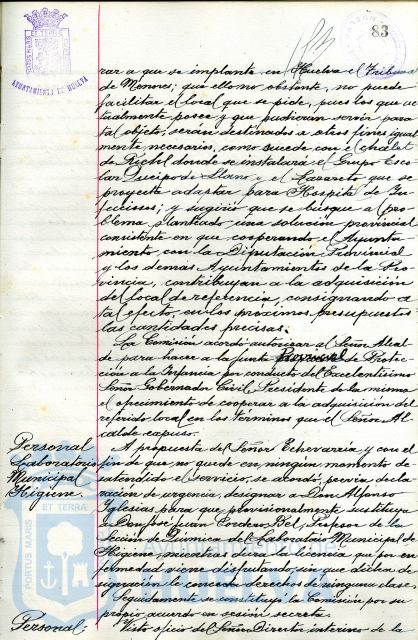 83
AYUNTAMIENTO DE HUELVA
rar a que se implante en Huelva el Tribunal
de Menores; que ello no obstante, no puede
facilitar el local que se pide, pues los que ac
tualmente posee y que pudieran servir para
tal objeto, serán destinados a otros fines igual
mente necesarios, como sucede con el chalet
de Riehl donde se instalará el Grupo Esco
lar Queipo de Llano y el Lazareto que se
proyecta adaptar para Hospital de In
fecciosos; y sugirió que se busque al pro
blema planteado una solución provincial
consistente en que cooperando el Ayunta
miento con la Diputación Provincial
y los demás Ayuntamientos de la Pro
vincia, contribuyan a la adquisición
del local de referencia, consignando a
tal efecto, en los próximos presupuestos
las cantidades precisas.
La Comisión acordó autorizar al Señor Alcal
de para hacer a la Junta Provincial de Protec
ción a la Infancia por conducto del Excelentísimo
Señor Gobernador Civil, Presidente de la misma
el ofrecimiento de cooperar a la adquisición del
referido local en los términos que el Señor Al
calde expuso.
Personal
Laboratorio
Municipal
Higiene.
A propuesta del Señor Echevarría, y con el
fin de que no quede en ningún momento de
satendido el servicio, se acordó, previa decla
ración de urgencia, designar a Don Alfonso
Iglesias para que provisionalmente sustituya
a Don José Juan Cordero Bel, Profesor de la
Sección de Química del Laboratorio Municipal de
Higiene mientras dura la licencia que por en
fermedad viene disfrutando, sin que dicha de
signación le conceda derechos de ninguna clase.
Seguidamente se constituye la Comisión por su
propio acuerdo en sesión secreta.
Personal.
Visto oficio del Señor Director interino de la
PORTUS MARIS
ET TERRA